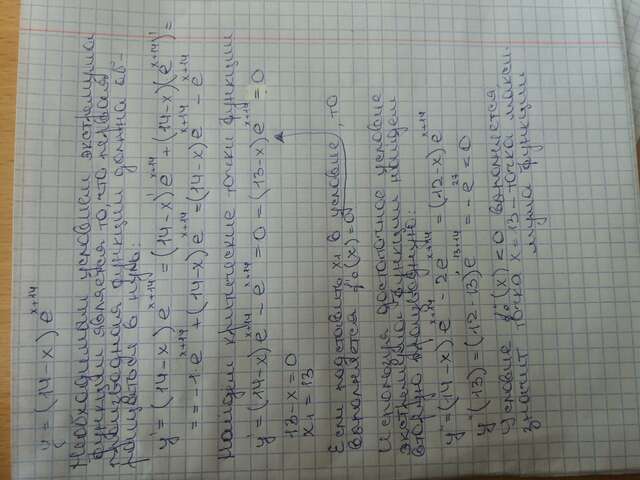 y = (14-x)e^{x+14}
Необходимым условием экстремума
функции является то, что первая
производная функции должна об-
ращаться в нуль:
y' = (14-x)'e^{x+14} = (14-x)'e^{x+14} + (14-x)(e^{x+14})' =
= -1·e^{x+14} + (14-x)e^{x+14} = (14-x)e^{x+14} - e^{x+14}
Найдем критические точки функции
y' = (14-x)e^{x+14} - e^{x+14} = 0 = (13-x)e^{x+14} = 0
13-x=0
x1 = 13
Если подставить x1 в условие, то
выполняется f'o(x)=0
Используя достаточное условие
экстремума функции найдем
вторую производную:
y'' = (14-x)e^{x+14} - 2e^{x+14} = (12-x)e^{x+14}
y''(13) = (12-13)e^{13+14} = -e^{27} = 0
Условие f''o(x) < 0 выполняется
значит точка x=13 - точка макси-
мума функции